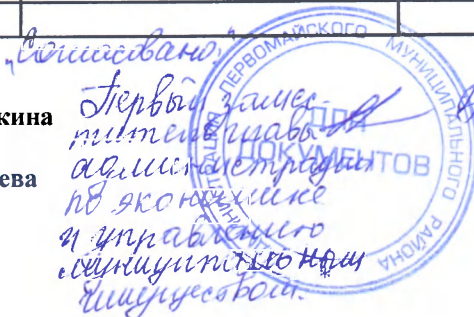 „Согласовано."
Первый замес-
кина
титель главы
администрации
ева
по экономике
и управлению
муниципальным
имуществом.
АДМИНИСТРАЦИЯ ПЕРВОМАЙСКОГО МУНИЦИПАЛЬНОГО РАЙОНА
ДЛЯ
ДОКУМЕНТОВ